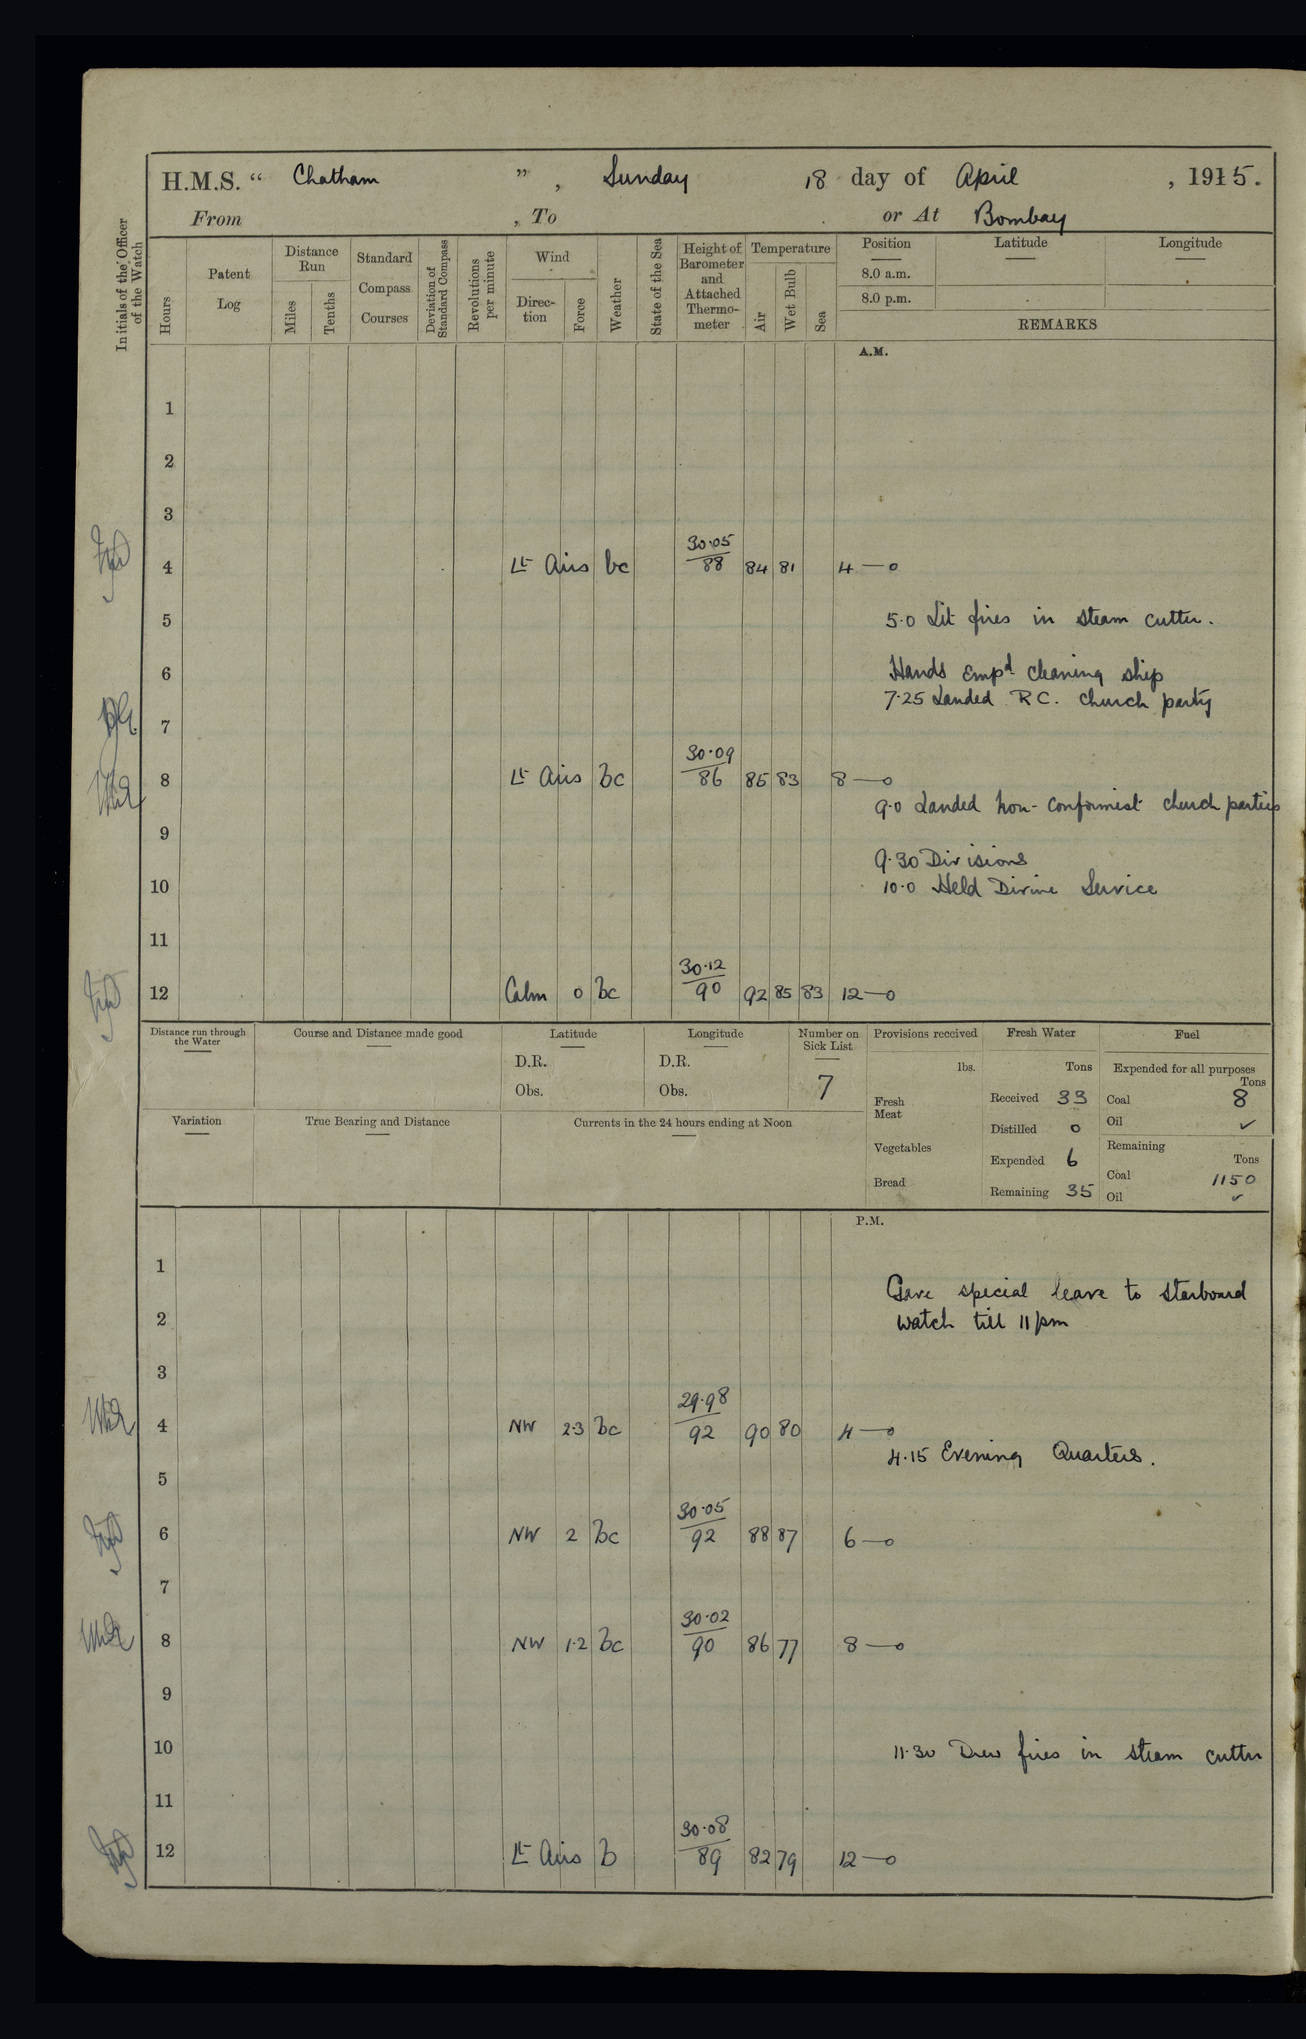 H.M.S. “ Chatham ” , Sunday 18 day of April , 1915.
From , To or At Bombay
Initials of the Officer of the Watch
Hours
Patent Log
Distance Run
Miles
Tenths
Standard Compass Courses
Deviation of Standard Compass
Revolutions per minute
Wind
Direc-tion
Force
Weather
State of the Sea
Height of Barometer and Attached Thermo-meter
Temperature
Air
Wet Bulb
Sea
Position Latitude Longitude
8.0 a.m.
8.0 p.m.
REMARKS
A.M.
1
2
3
4 Lt Airs bc 30.05 / 88 84 81 4 —o
5 5.0 Lit fires in steam cutter.
6 Hands Empd cleaning ship
7.25 Landed R C. church party
7
8 Lt Airs bc 30.09 / 86 85 83 8 —o
9.0 Landed non-conformist church parties
9
9.30 Divisions
10 10.0 Held Divine Service
11
12 Calm 0 bc 30.12 / 90 92 85 83 12 —o
Distance run through the Water
Course and Distance made good
Latitude
D.R.
Obs.
Longitude
D.R.
Obs.
Number on Sick List
7
Variation
True Bearing and Distance
Currents in the 24 hours ending at Noon
Provisions received
lbs.
Fresh Meat
Vegetables
Bread
Fresh Water
Tons
Received 33
Distilled 0
Expended 6
Remaining 35
Fuel
Expended for all purposes
Tons
Coal 8
Oil ✓
Remaining
Tons
Coal 1150
Oil ✓
P.M.
1
Gave special leave to starboard
2 watch till 11 pm
3
4 NW 2.3 bc 29.98 / 92 90 80 4 —o
4.15 Evening Quarters.
5
6 NW 2 bc 30.05 / 92 88 87 6 —o
7
8 NW 1.2 bc 30.02 / 90 86 77 8 —o
9
10 11.30 Drew fires in steam cutter
11
12 Lt Airs b 30.08 / 89 82 79 12 —o